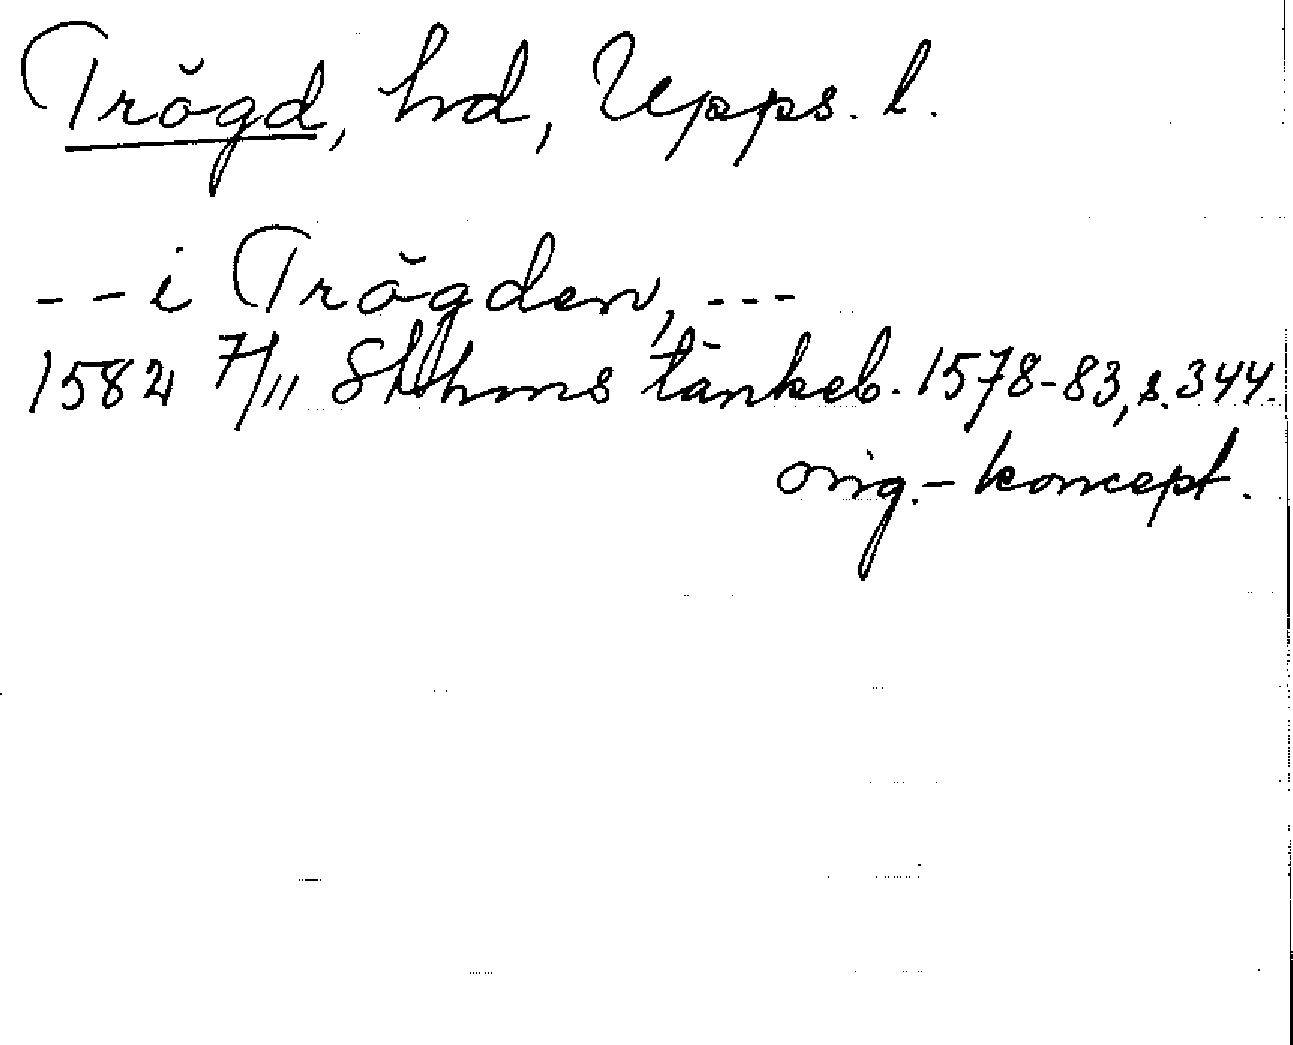 Trögd, hd, Upps. l.
-- i Trögden, ---
1582 7/11 Sthms tänkeb. 1578-83, s. 344.
orig.- koncept.